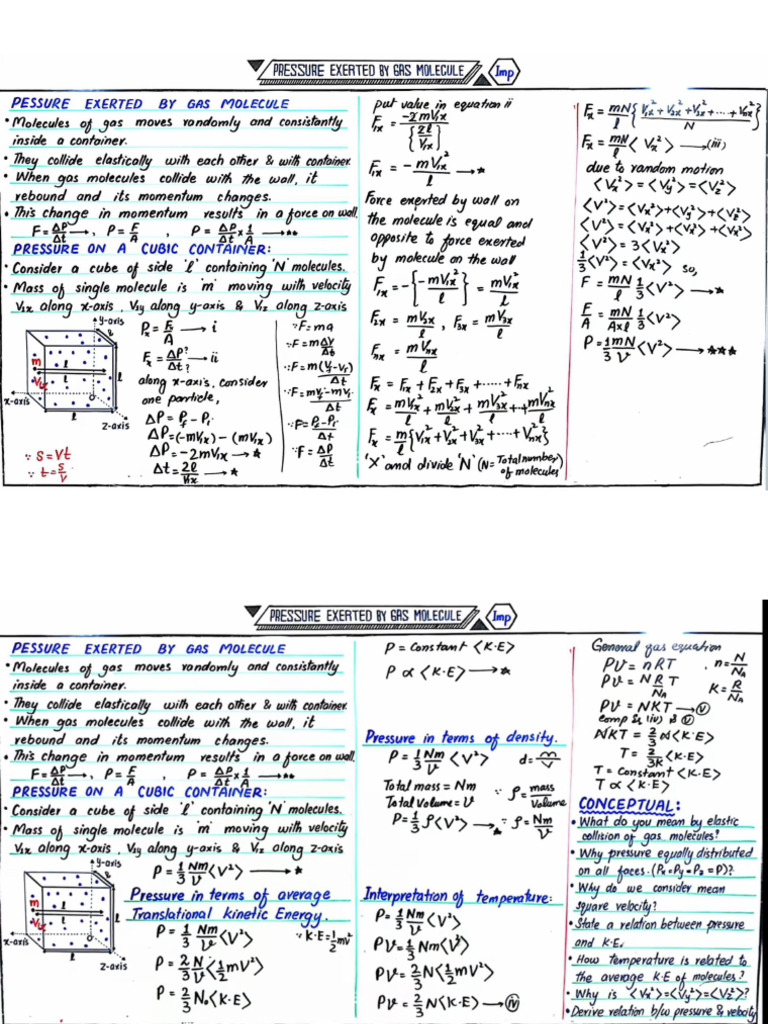 PRESSURE EXERTED BY GAS MOLECULE Imp
PESSURE EXERTED BY GAS MOLECULE
• Molecules of gas moves randomly and consistantly
inside a container.
• They collide elastically with each other & with container
• When gas molecules collide with the wall, it
rebound and its momentum changes.
• This change in momentum results in a force on wall.
F=ΔP/Δt →, P=F/A , P=ΔP/Δt×1/A →**
PRESSURE ON A CUBIC CONTAINER:
• Consider a cube of side 'l' containing 'N' molecules.
• Mass of single molecule is 'm' moving with velocity
V1x along x-axis, V1y along y-axis & V1z along z-axis
y-axis
l
m
l
V1x
l
x-axis
z-axis
∵ S=Vt
∵ t=S/V
Px=Fx/A → i
Fx=ΔP?/Δt? → ii
along x-axis, consider
one particle,
ΔP=Pf-Pi
ΔP=(-mV1x)-(mV1x)
ΔP=-2mV1x →*
Δt=2l/V1x →*
∵F=ma
∵F=mΔV/Δt
∵F=m(Vf-Vi)/Δt
∵F=mVf-mVi/Δt
∵F=ΔP/Δt
put value in equation ii
F1x=-2mV1x/{2l/V1x}
F1x=-mV1x²/l →*
Force exerted by wall on
the molecule is equal and
opposite to force exerted
by molecule on the wall
F1x=-{-mV1x²/l}=mV1x²/l
F2x=mV2x²/l , F3x=mV3x²/l
Fnx=mVnx²/l
Fx=F1x+F2x+F3x+.....+Fnx
Fx=mV1x²/l+mV2x²/l+mV3x²/l+..+mVnx²/l
Fx=m/l{V1x²+V2x²+V3x²+...+Vnx²}
'X' and divide 'N' (N=Total number
of molecules)
Fx=mN/l{V1x²+V2x²+V3x²+...+Vnx²/N}
Fx=mN/l<Vx²> →(iii)
due to random motion
<Vx²>=<Vy²>=<Vz²>
<V²>=<Vx²>+<Vy²>+<Vz²>
<V²>=<Vx²>+<Vx²>+<Vx²>
<V²>=3<Vx²>
1/3<V²>=<Vx²> so,
F=mN/l 1/3<V²> →*
F/A=mN/A×l 1/3<V²>
P=1/3 mN/V<V²> →***
PRESSURE EXERTED BY GAS MOLECULE Imp
PESSURE EXERTED BY GAS MOLECULE
• Molecules of gas moves randomly and consistantly
inside a container.
• They collide elastically with each other & with container
• When gas molecules collide with the wall, it
rebound and its momentum changes.
• This change in momentum results in a force on wall.
F=ΔP/Δt →, P=F/A , P=ΔP/Δt×1/A →**
PRESSURE ON A CUBIC CONTAINER:
• Consider a cube of side 'l' containing 'N' molecules.
• Mass of single molecule is 'm' moving with velocity
V1x along x-axis, V1y along y-axis & V1z along z-axis
y-axis
l
m
l
V1x
l
x-axis
z-axis
P=1/3 Nm/V<V²> →*
Pressure in terms of average
Translational kinetic Energy.
P=1/3 Nm/V<V²> ∵K.E=1/2mv²
P=2/3 N/V<1/2mV²>
P=2/3 No<K.E>
P=Constant <K.E>
P∝<K.E> →*
Pressure in terms of density.
P=1/3 Nm/V<V²> d=m/v
Total mass=Nm
Total Volume=V
∵ρ=mass/Volume
P=1/3ρ<V²> →* ∵ρ=Nm/V
Interpretation of temperature:
P=1/3 Nm/V<V²>
PV=1/3Nm<V²>
PV=2/3N<1/2mV²>
PV=2/3N<K.E> →(iv)
General gas equation
PV=nRT , n=N/NA
PV=N R/NA T K=R/NA
PV=NKT →(v)
NKT=2/3N<K.E>
T=2/3K<K.E>
T=Constant<K.E>
T∝<K.E>
CONCEPTUAL:
• What do you mean by elastic
collision of gas molecules?
• Why pressure equally distributed
on all faces.(Px=Py=Pz=P)?
• Why do we consider mean
square velocity?
• State a relation between pressure
and K.E.
• How temperature is related to
the average K.E of molecules?
• Why is <Vx²>=<Vy²>=<Vz²>?
• Derive relation b/w pressure & velocity